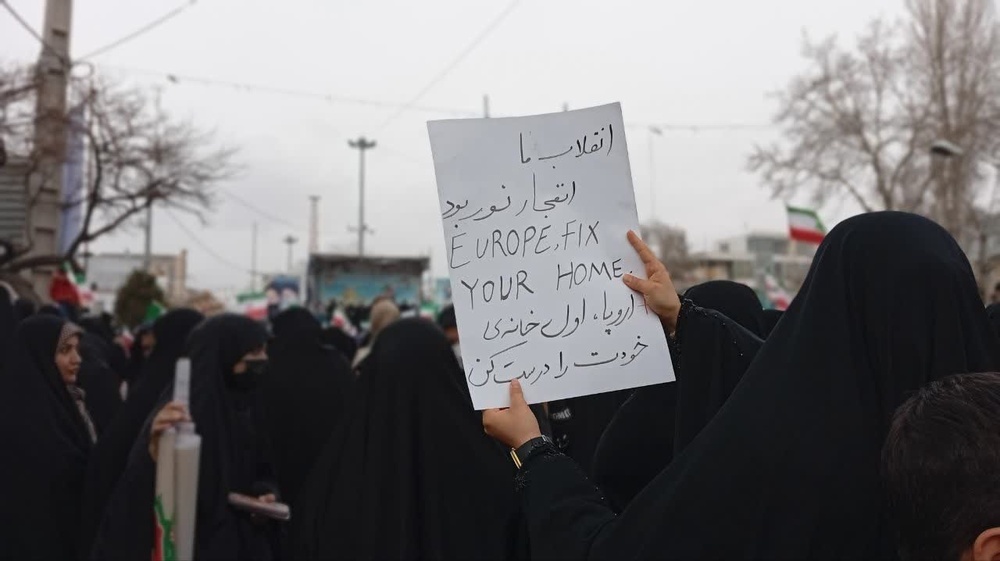 انقلاب ما
انفجار نور بود
EUROPE, FIX
YOUR HOME.
اروپا، اول خانه‌ی
خودت را درست کن